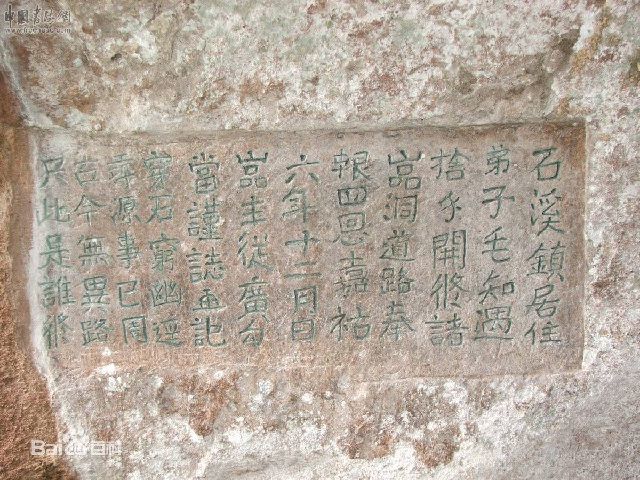 石溪鎮居住
弟子毛知遇
捨錢開修諸
嵓洞道路奉
報四恩嘉祐
六年十二月日
嵓主從廣勾
當謹誌並記
穿石窮幽逕
尋源事已同
古今無異路
只此是誰修
中国书法网
Baidu百科